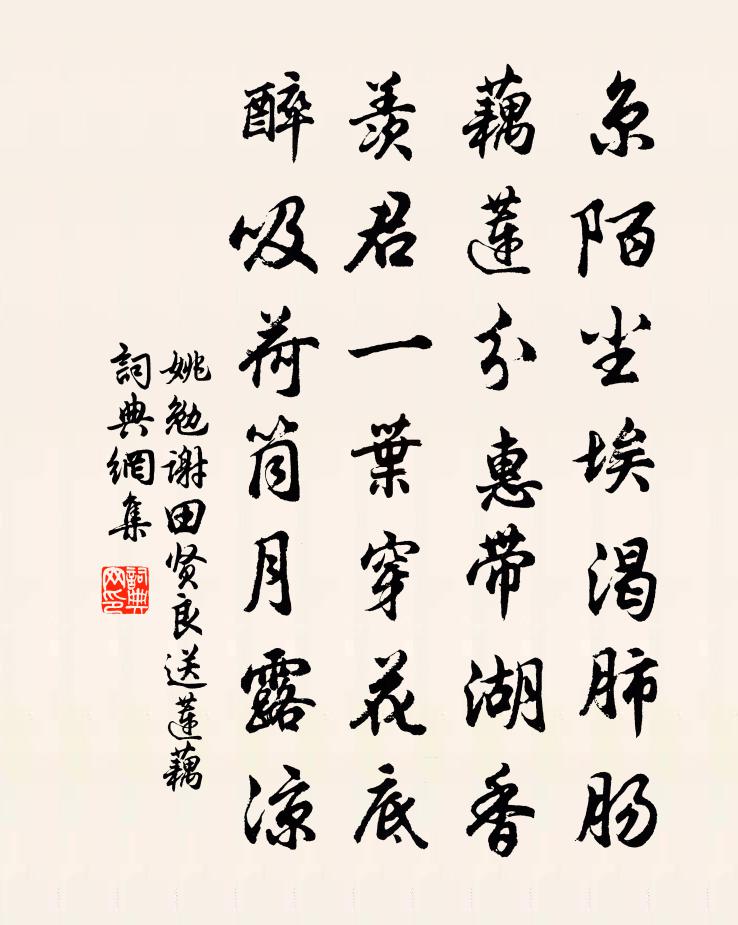 京陌尘埃渴肺肠
藕蓮分惠带湖香
羡君一葉穿花底
醉吸荷筒月露凉
姚勉谢田贤良送蓮藕
詞典網集
詞典网印